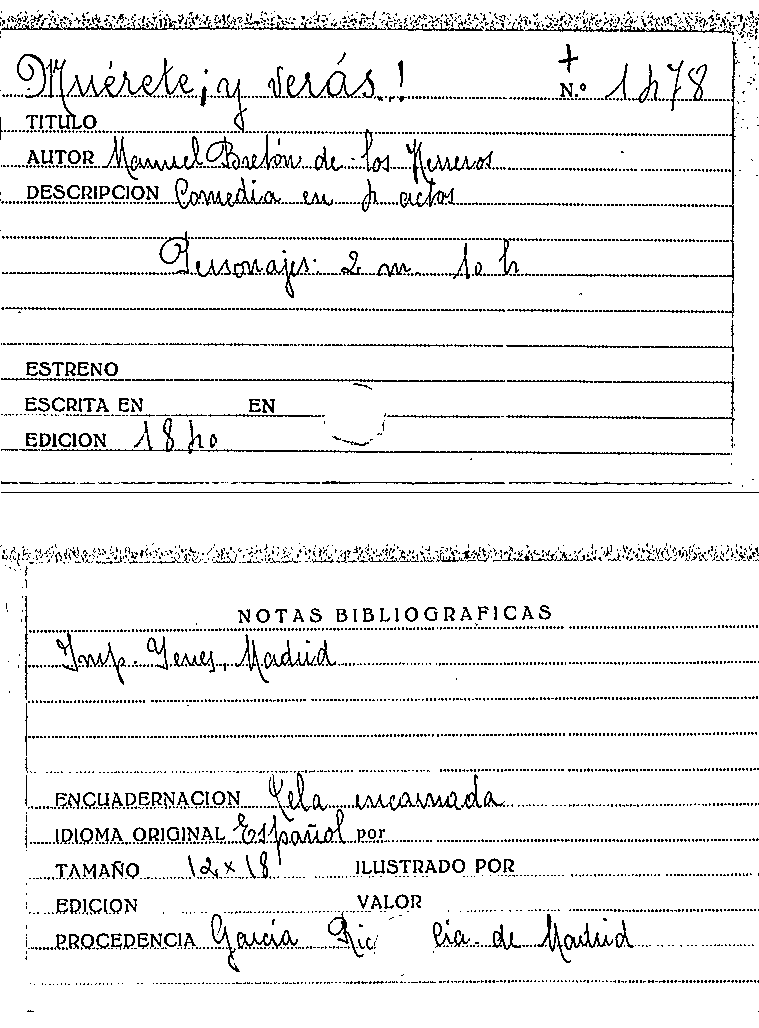 Muérete ¡y verás..!
+
N.º 1478
TITULO
AUTOR Manuel Bretón de los Herreros
DESCRIPCION Comedia en 4 actos
Personajes: 2 m 10 h
ESTRENO
ESCRITA EN EN
EDICION 1840
NOTAS BIBLIOGRAFICAS
Imp. Yenes, Madrid
ENCUADERNACION Tela encarnada
IDIOMA ORIGINAL Español por
TAMAÑO 12 x 18 ILUSTRADO POR
EDICION VALOR
PROCEDENCIA García Ric Cia. de Madrid